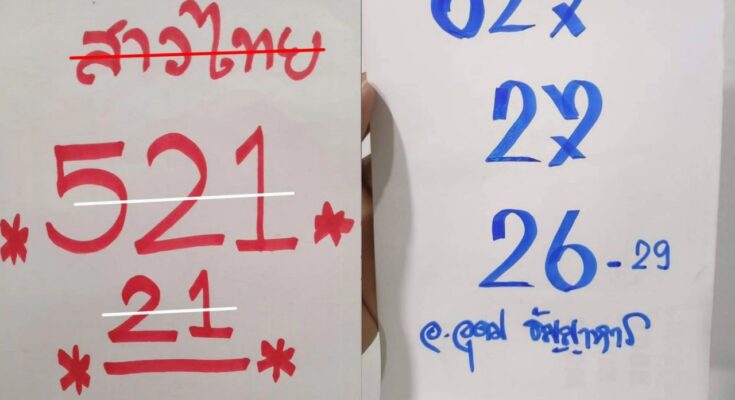 สาวไทย
* 521 *
21
* *
26 - 29
อ.อุดม ธัญญาหาร